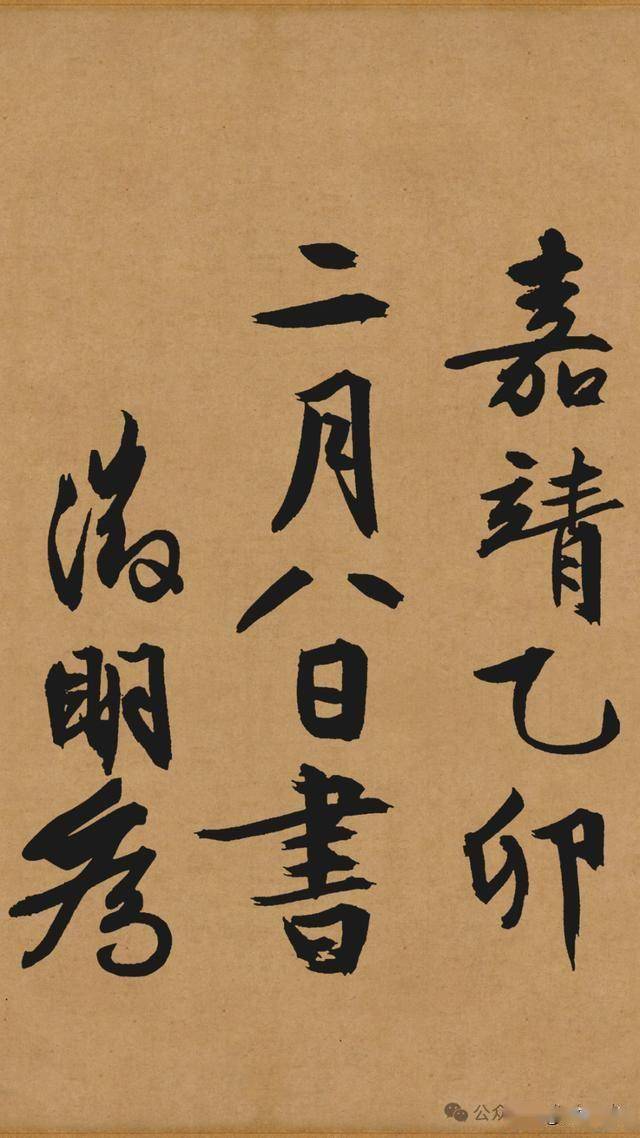 嘉靖乙卯
二月八日書
徵明為
公众